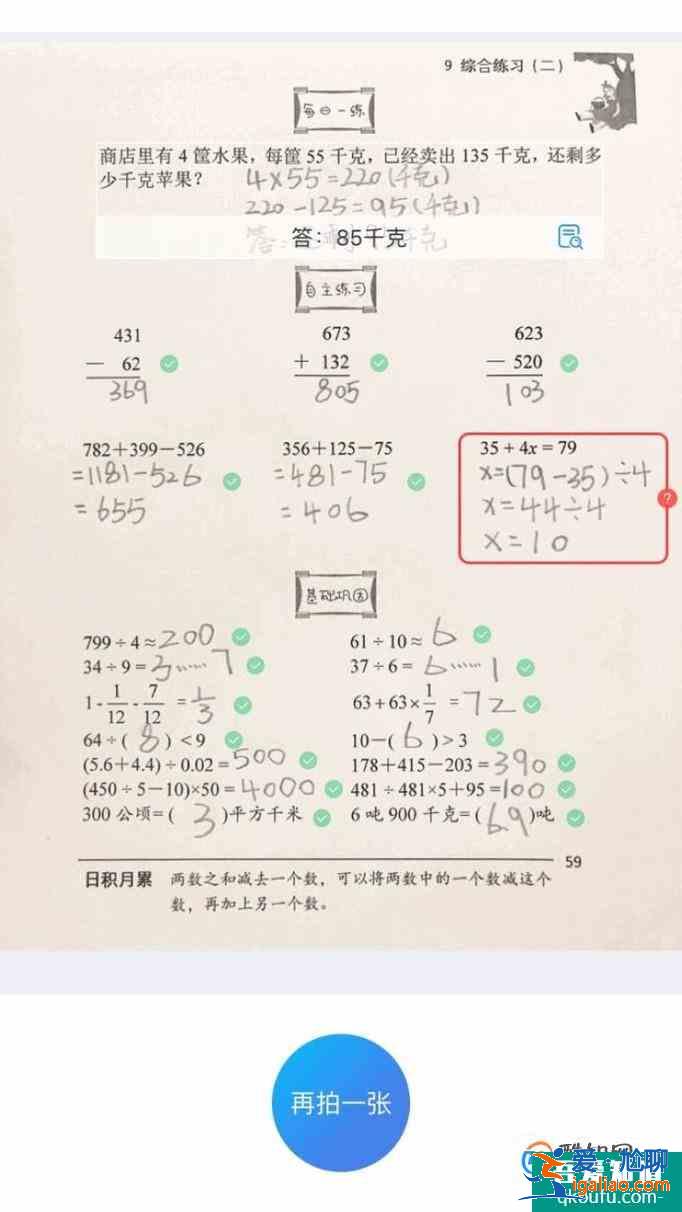 9 综合练习（二）
每日一练
商店里有 4 筐水果，每筐 55 千克，已经卖出 135 千克，还剩多
少千克苹果？ 4×55=220(千克)
220-125=95(千克)
答：85千克
自主练习
431 673 623
－ 62 ＋ 132 － 520
369 805 103
782＋399－526 356＋125－75 35 + 4x = 79
=1181-526 =481-75 x=(79-35)÷4
=655 =406 x=44÷4
x=10
?
基础巩固
799÷4≈200 61÷10≈6
34÷9=3……7 37÷6=6……1
1-1/12-7/12=1/3 63+63×1/7=72
64÷(8)<9 10－(6)>3
(5.6＋4.4)÷0.02=500 178＋415－203=390
(450÷5－10)×50=4000 481÷481×5＋95=100
300 公顷=(3)平方千米 6 吨 900 千克=(6.9)吨
59
日积月累 两数之和减去一个数，可以将两数中的一个数减这个
数，再加上另一个数。
再拍一张
爱尬聊
igaliao.com
qkoufu.com